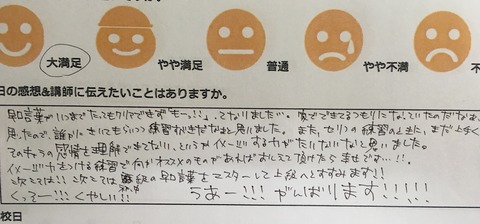 大満足 やや満足 普通 やや不満 不
日の感想&講師に伝えたいことはありますか。
早口言葉がいつまでたってもクリアできず「もーっ!!」ってなりました…。家でできてるつもりになっていたのだなぁ、
思ったので、誰かにきいてもらいつつ練習すべきだなぁと思いました。また、セリフの練習のときに、まだ上手く
そのキャラの感情を理解できてない、というかイメージする力がたりないなと思いました。
イメージ力をつける練習で何かオススメのものがあれば おしえて頂けたら幸せです…!!
次こそは!! 次こそは 級の早口言葉をマスターして上級へとすすみます!!
くっそー!!! くやしい!! うおー!!! がんばります!!!!!
校日